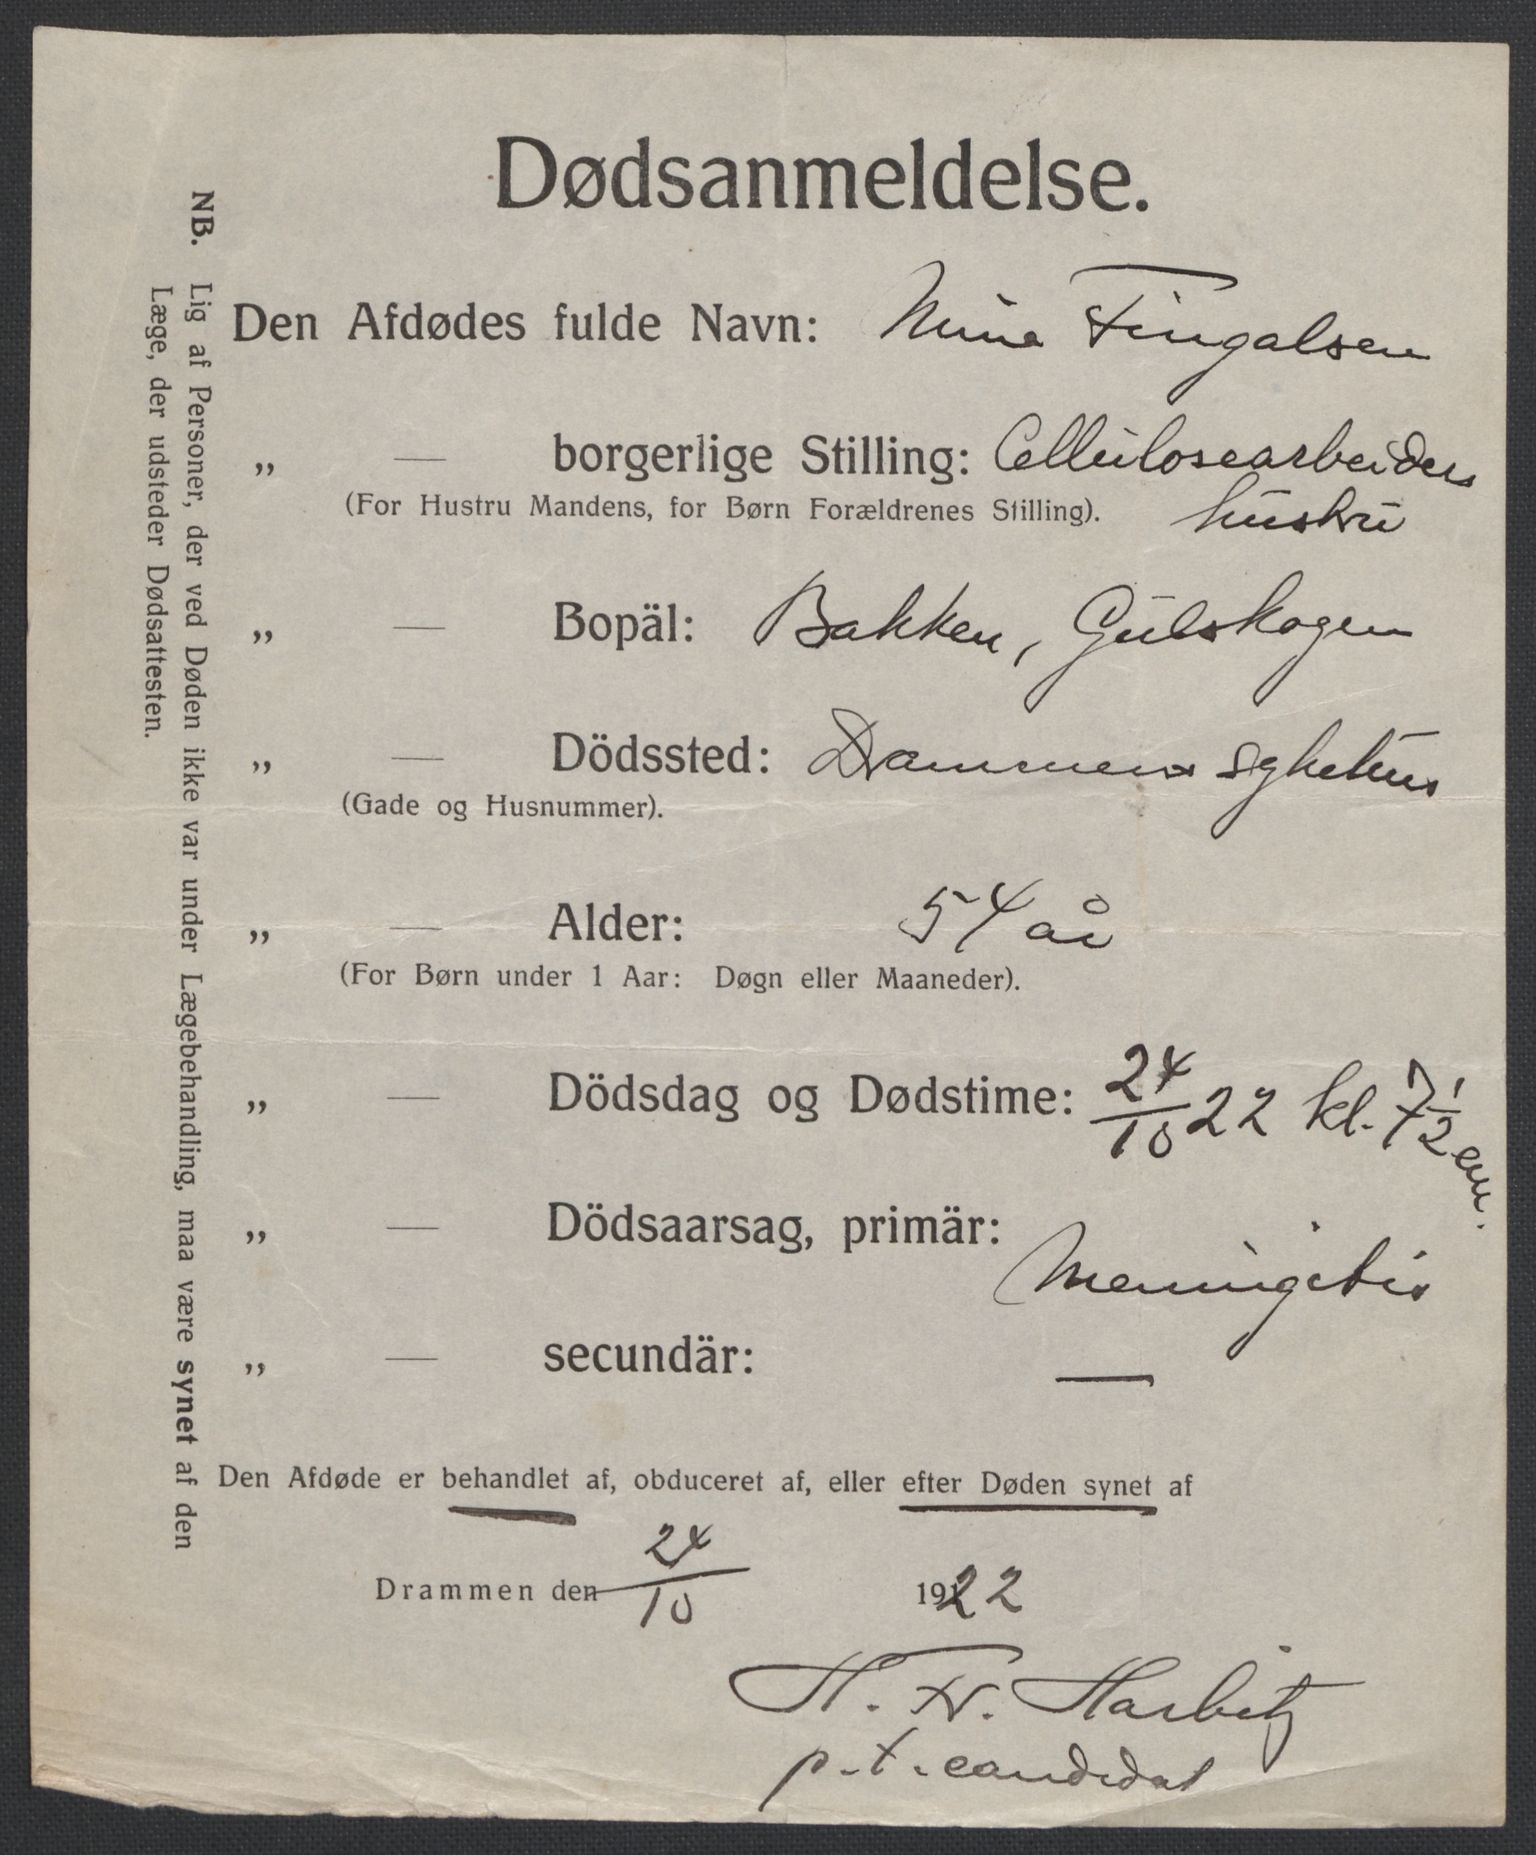 Dødsanmeldelse.
Den Afdødes fulde Navn: Mina Fingalsen
„ — borgerlige Stilling: Cellulosearbeiders
(For Hustru Mandens, for Børn Forældrenes Stilling). hustru
„ — Bopäl: Bakken, Gulskogen
„ — Dödssted: Drammens sykehus
(Gade og Husnummer).
„ — Alder: 54 år
(For Børn under 1 Aar: Døgn eller Maaneder).
„ — Dödsdag og Dødstime: 24/10 22 kl. 7 1/2 em.
„ — Dödsaarsag, primär: Meningitis
„ — secundär: —
Den Afdøde er behandlet af, obduceret af, eller efter Døden synet af
Drammen den 24/10 1922
H. Fr. Harbitz
p.t. candidat
NB. Lig af Personer, der ved Døden ikke var under Lægebehandling, maa være synet af den
Læge, der udsteder Dødsattesten.